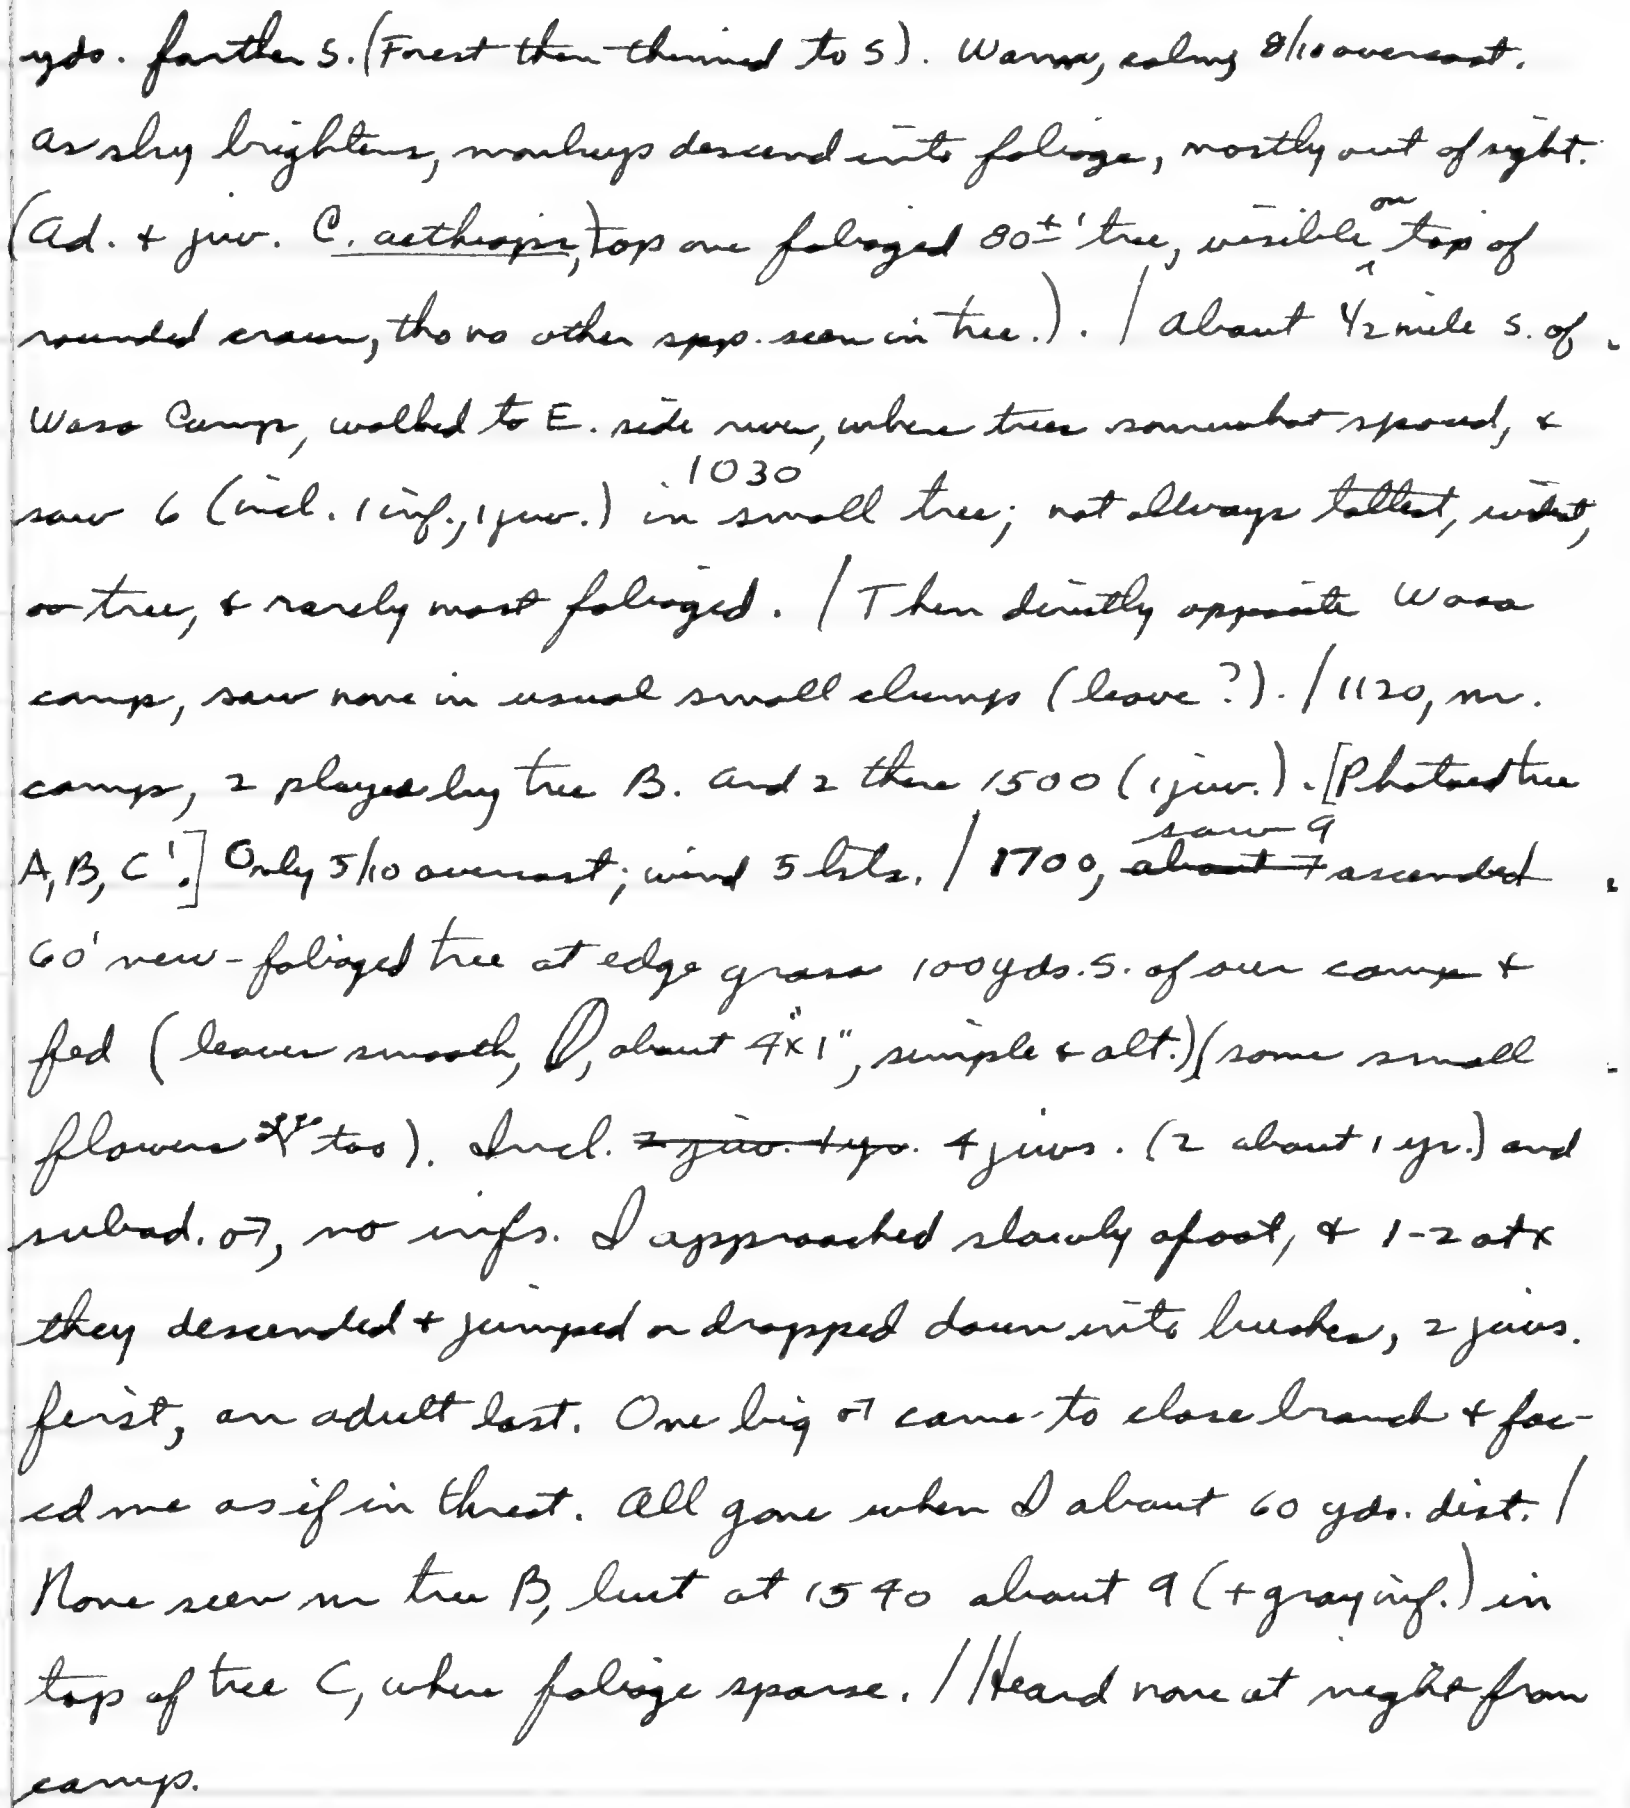 yds. farther S. (Forest then thinned to S). Warm, calm, 8/10 overcast.
As sky brightens, monkeys descend into foliage, mostly out of sight.
(Ad. + juv. C. aethiops, top one foliaged 80±' tree, visible on top of
rounded crown, tho no other spp. seen in tree.). / About 1/2 mile S. of
Waso Camp, walked to E. side river, where trees somewhat spaced, +
1030
saw 6 (incl. 1 inf., 1 juv.) in small tree; not always tallest, widest,
tree, + rarely most foliaged. / Then directly opposite Waso
camp, saw none in usual small clumps (leave?). / 1120, nr.
camp, 2 played by tree B. And 2 there 1500 (1 juv.). [Photoed tree
A, B, C'.] Only 5/10 overcast; wind 5 kts. / 1700, about 7 saw 9 ascended
60' new-foliaged tree at edge grass 100 yds. S. of our camp +
fed (leaves smooth, about 4"x1", simple + alt.) (some small
flowers too). Incl. 2 juv. 1 yr. 4 juvs. (2 about 1 yr.) and
subad. ♂, no infs. I approached slowly afoot, + 1-2 at x
they descended + jumped or dropped down into bushes, 2 juvs.
first, an adult last. One big ♂ came to close branch + fac-
ed me as if in threat. All gone when I about 60 yds. dist. /
None seen nr tree B, but at 1540 about 9 (+ gray inf.) in
top of tree C, where foliage sparse. / Heard none at night from
camp.